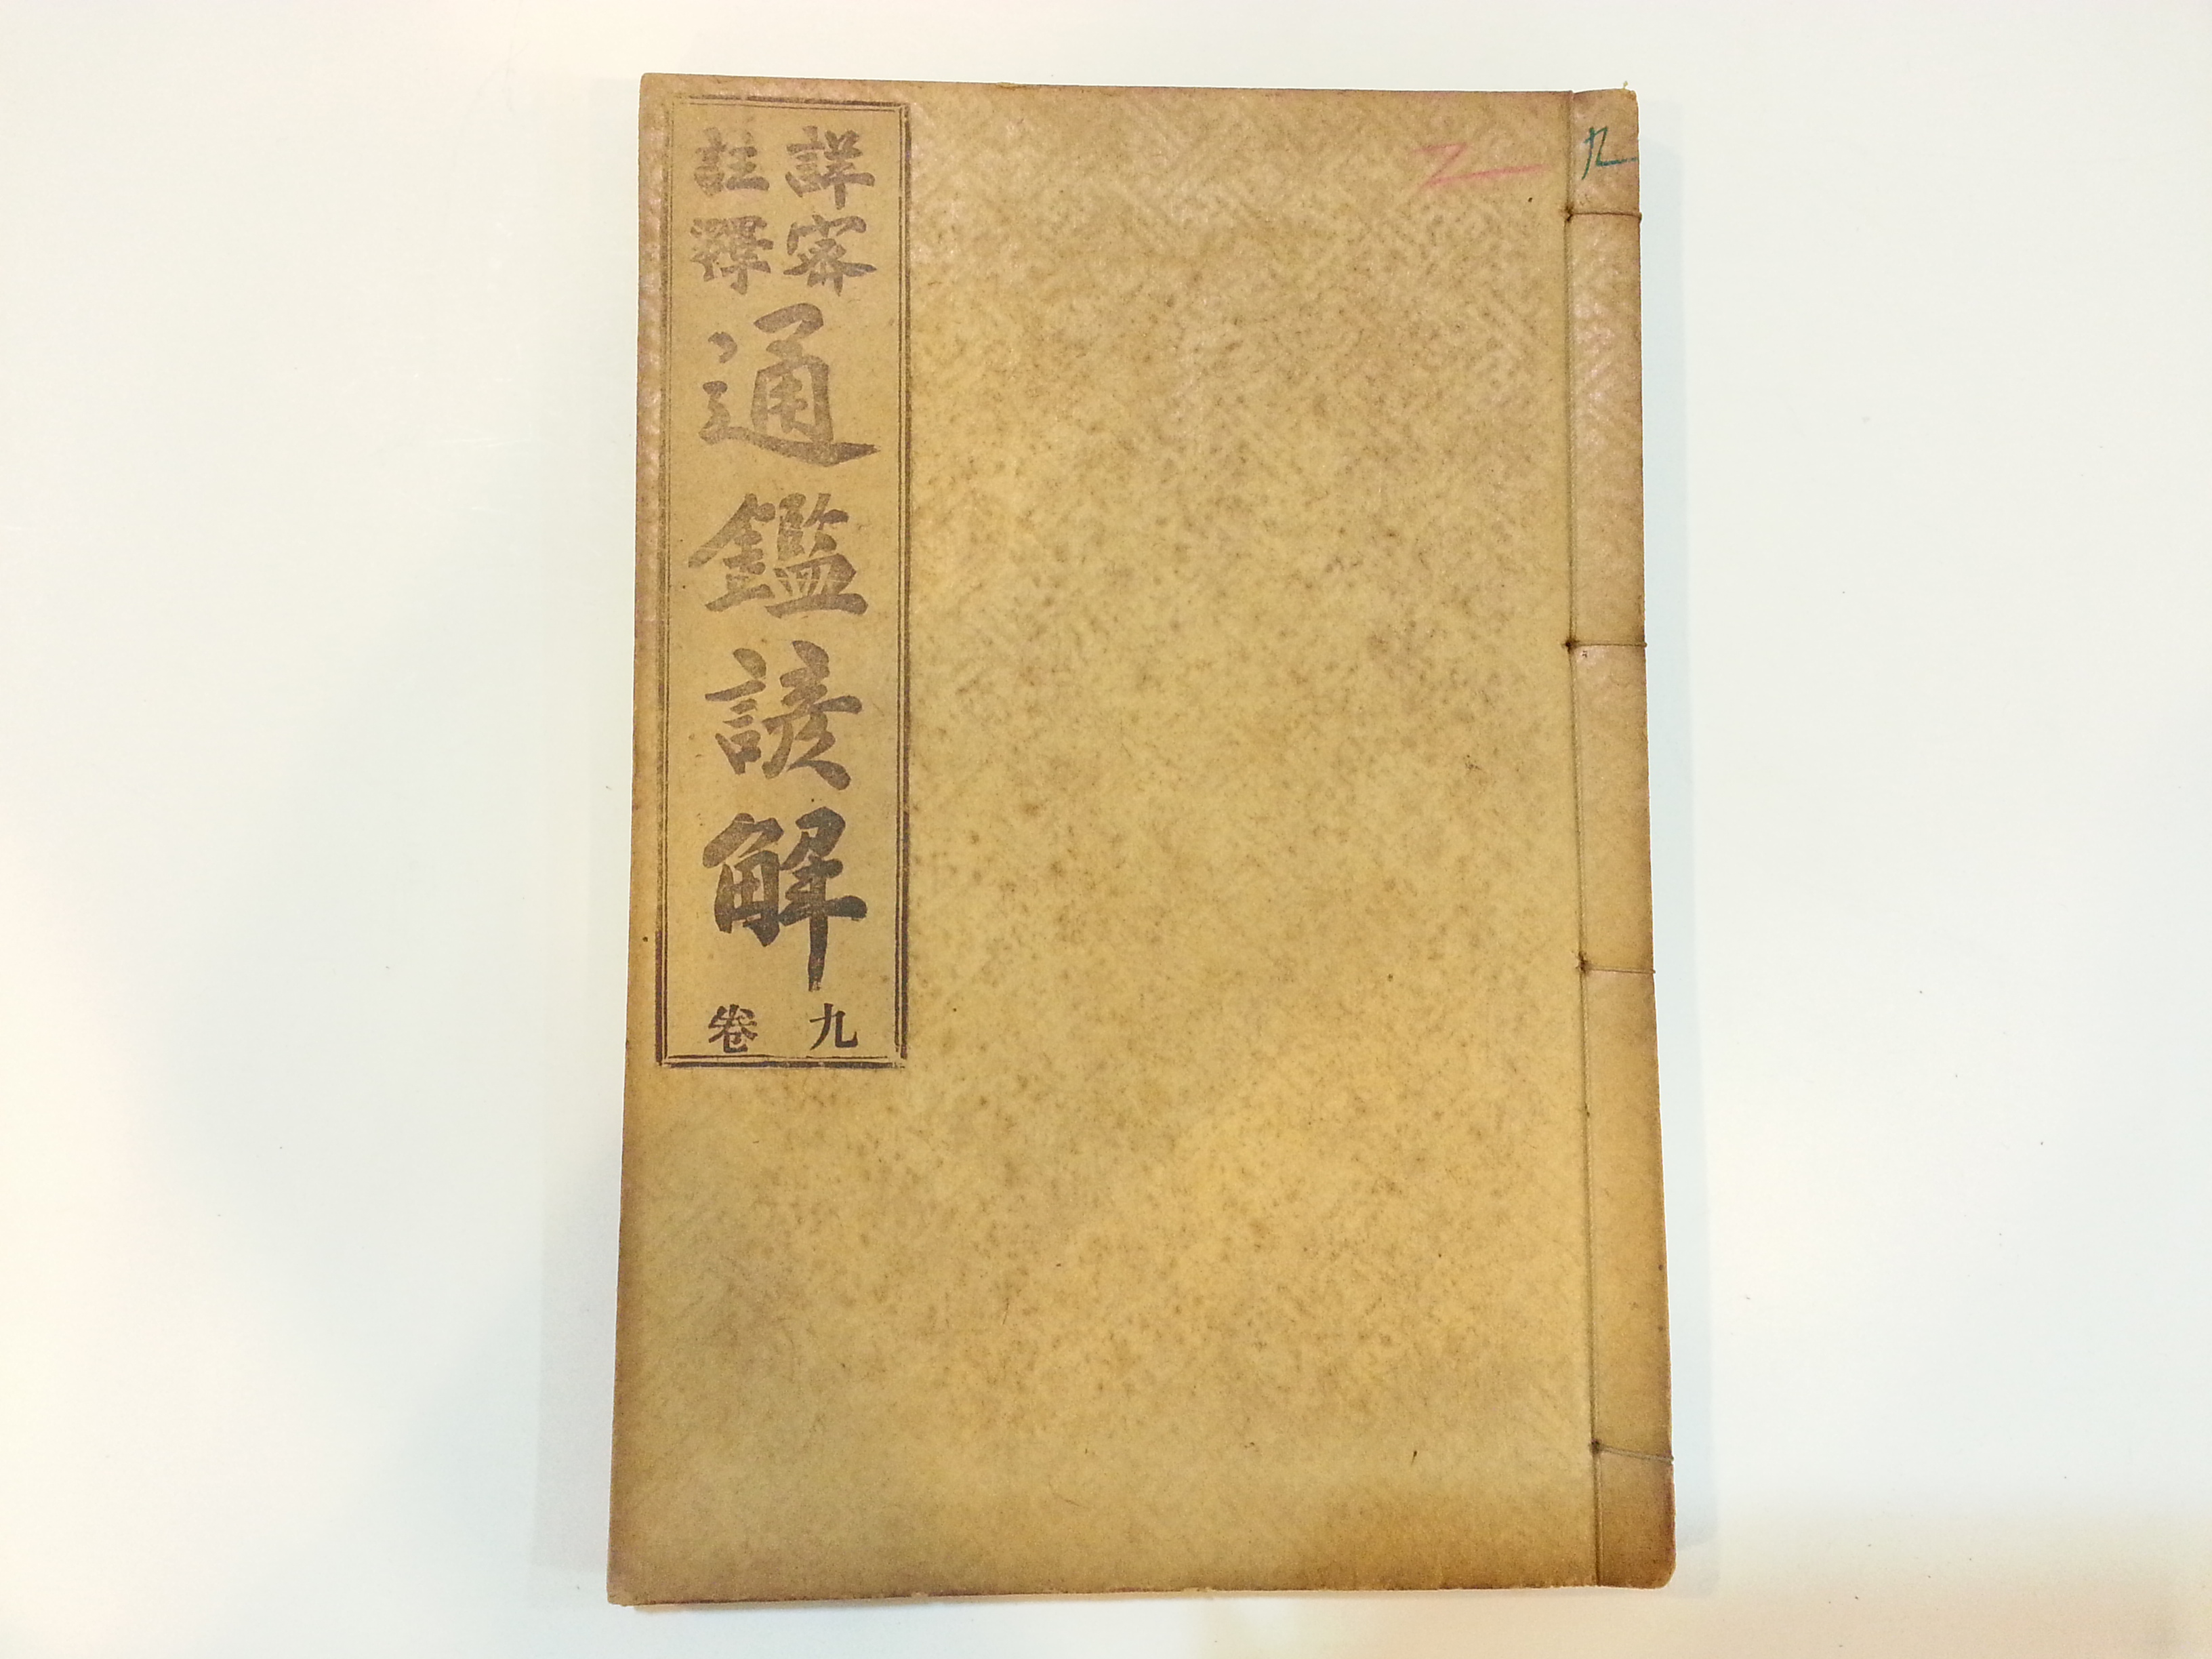 詳密
註釋
通鑑諺解
卷九
九